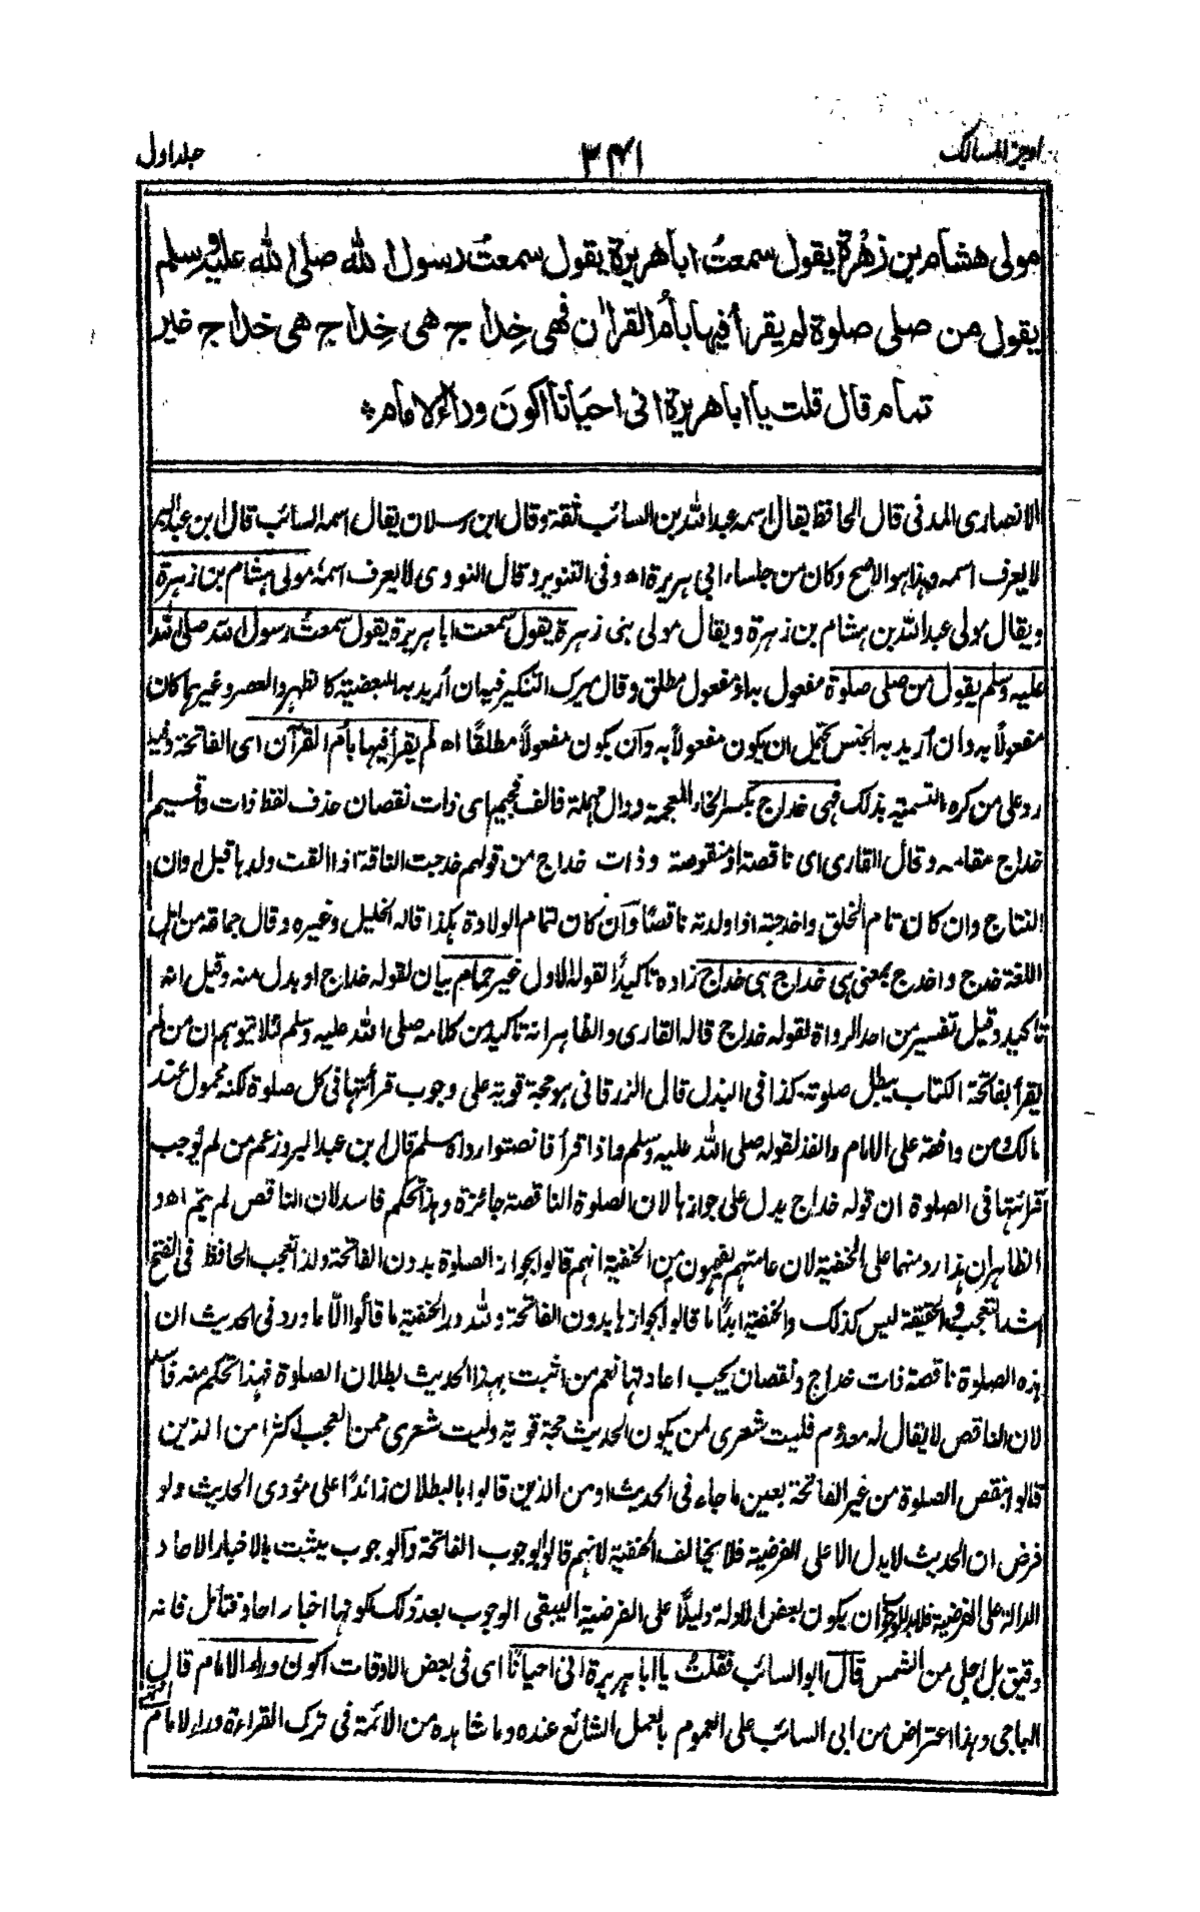 اوجز المسالك
٣٤١
جلد اول
مولى هشام بن زهرة يقول سمعتُ ابا هريرة يقول سمعت رسول الله صلى الله عليه وسلم
يقول من صلى صلوة لم يقرأ فيها بأم القران فهى خِداج هى خِداج هى خداج غير
تمام قال قلت يا ابا هريرة انى احيانا اكونَ وراء الامام
الانصارى المدنى قال الحافظ يقال اسمه عبد الله بن السائب ثقة وقال ابن رسلان يقال اسمه السائب قال ابن عبد البر
لا يعرف اسمه وهذا هو الاصح وكان من جلساء ابى هريرة اه وفى التنوير وقال النووى لا يعرف اسمهٗ مولى هشام بن زهرة
ويقال مولى عبد الله بن هشام بن زهرة ويقال مولى بنى زهرة يقول سمعت ابا هريرة يقول سمعتُ رسول الله صلى الله
عليه وسلم يقول من صلى صلوة مفعول به او مفعول مطلق وقال ميرك التنكير فيه ان أريد به البعضية كالظهر والعصر وغيرهما كان
مفعولاً به وان أريد به الجنس يحتمل ان يكون مفعولاً به وان يكون مفعولاً مطلقًا اه لم يقرأ فيها بأم القرآن اى الفاتحة وفيه
رد على من كره التسمية بذلك فهى خداج بكسر الخاء المعجمة ودال مهملة فالف فجيم اى ذات نقصان حذف لفظ ذات واقيم
خداج مقامه وقال القارى اى ناقصة او منقوصة وذات خداج من قولهم خدجت الناقة اذا القت ولدها قبل اوان
النتاج وان كان تام الخلق واخدجته اذا ولدته ناقصًا وان كان لتمام الولادة هكذا قاله الخليل وغيره وقال جماعة من اهل
اللغة خدج واخدج بمعنى هى خداج هى خداج زاده تاكيدًا لقوله الاول غير تمام بيان لقوله خداج او بدل منه وقيل انه
تاكيد وقيل تفسير من احد الرواة لقوله خداج قاله القارى والظاهر انه تاكيد من كلامه صلى الله عليه وسلم لئلا يتوهم ان من لم
يقرأ بفاتحة الكتاب يبطل صلوته كذا فى البذل قال الزرقانى هو حجة قوية على وجوب قرأتها فى كل صلوة لكنه محمول عند
مالك ومن وافقه على الامام والفذ لقوله صلى الله عليه وسلم واذا قرأ فانصتوا رواه مسلم قال ابن عبد البر وزعم من لم يوجب
قرائتها فى الصلوة ان قوله خداج يدل على جوازها لان الصلوة الناقصة جائزة وهذا تحكم فاسد لان الناقص لم يتم اه و
الظاهر ان هذا رد منهما على الحنفية لان عامتهم يفهمون من الحنفية انهم قالوا بجواز الصلوة بدون الفاتحة ولذا تعجب الحافظ فى الفتح
اشد التعجب وفى الحقيقة ليس كذلك والحنفية ابدًا ما قالوا بجوازها بدون الفاتحة ولله در الحنفية ما قالوا الا ما ورد فى الحديث ان
هذه الصلوة ناقصة ذات خداج ونقصان يجب اعادتها نعم من اثبت بهذا الحديث بطلان الصلوة فهذا تحكم منه فاسد
لان الناقص لا يقال له معدوم فليت شعرى لمن يكون الحديث حجة قوية وليت شعرى ممن العجب اكثر امن الذين
قالوا بنقص الصلوة من غير الفاتحة بعين ما جاء فى الحديث او من الذين قالوا بالبطلان زائدًا على مؤدى الحديث ولو
فرض ان الحديث لا يدل الا على الفرضية فلا يخالف الحنفية لانهم قالوا بوجوب الفاتحة والوجوب يثبت بالاخبار الاحاد
الدالة على الفرضية فلابد للوجوب ان يكون بعض الادلة دليلًا على الفرضية ليبقى الوجوب بعد ذلك لكونها اخبار احاد فتأمل فانه
دقيق بل اجلى من الشمس قال ابو السائب فقلتُ يا ابا هريرة انى احيانًا اى فى بعض الاوقات اكون وراء الامام قال
الباجى وهذا اعتراض من ابى السائب على العموم بالعمل الشائع عنده وما شاهده من الائمة فى ترك القراءة وراء الامام